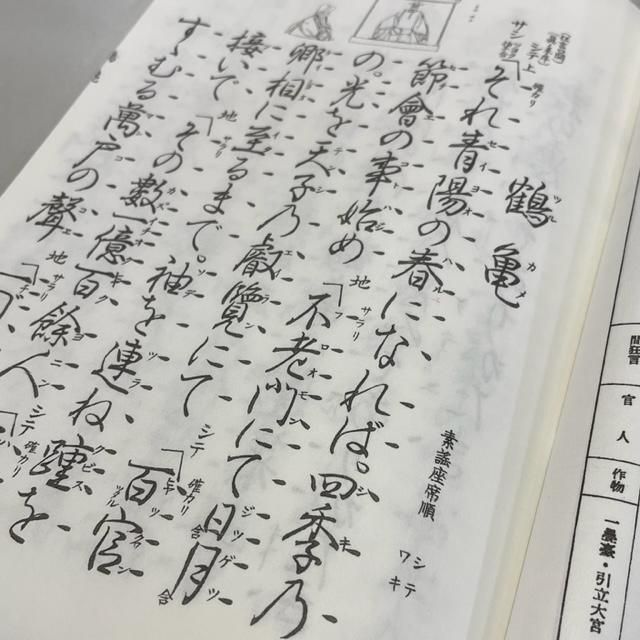 鶴亀
素謡座席順 シテ ワキ
サシ「それ青陽の春になれば。四季乃
節會の事始め 地「不老門にて日月
の。光を天子乃叡覧にて シテ「百官
卿相に至るまで。袖を連ね踵を
接いで 地「その数一億百餘人 シテ「
すゝむる萬戸の聲 地「
官人
作物
一畳臺・引立大宮